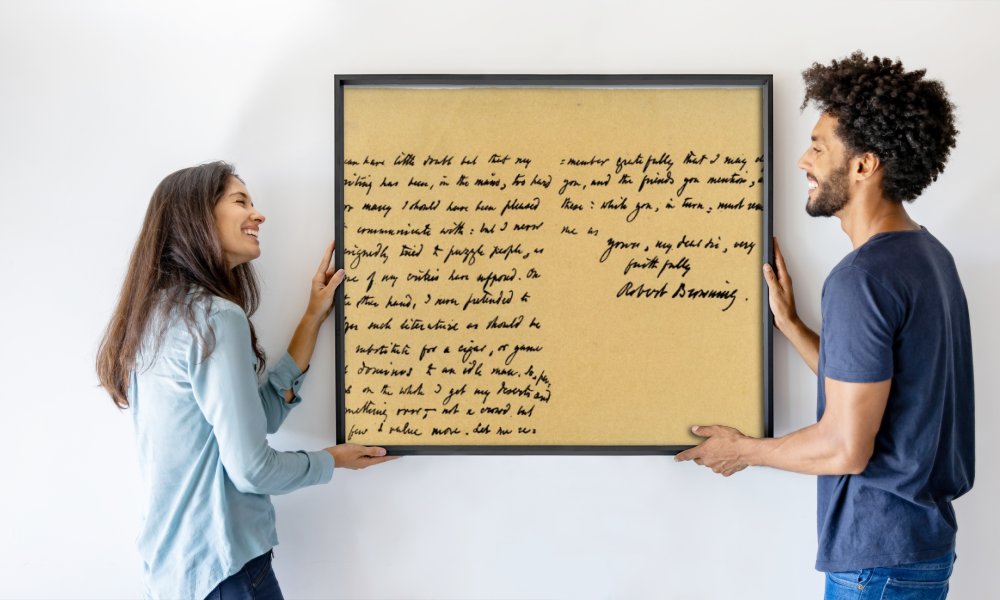 have little doubt but that my
has been, in the main, too hard
many I should have been pleased
communicate with : but I never
tried to puzzle people, as
of my critics have supposed. On
other hand, I never pretended to
such literature as should be
substitute for a cigar, or game
dominos to an idle man. So,
on the whole I get my deserts and
over, - not a crowd but
few I value more. Let me re=
=member gratefully that I may
you, and the friends you mention,
these : while you, in turn, must
me as
yours, my dear Sir, very
faithfully
Robert Browning.